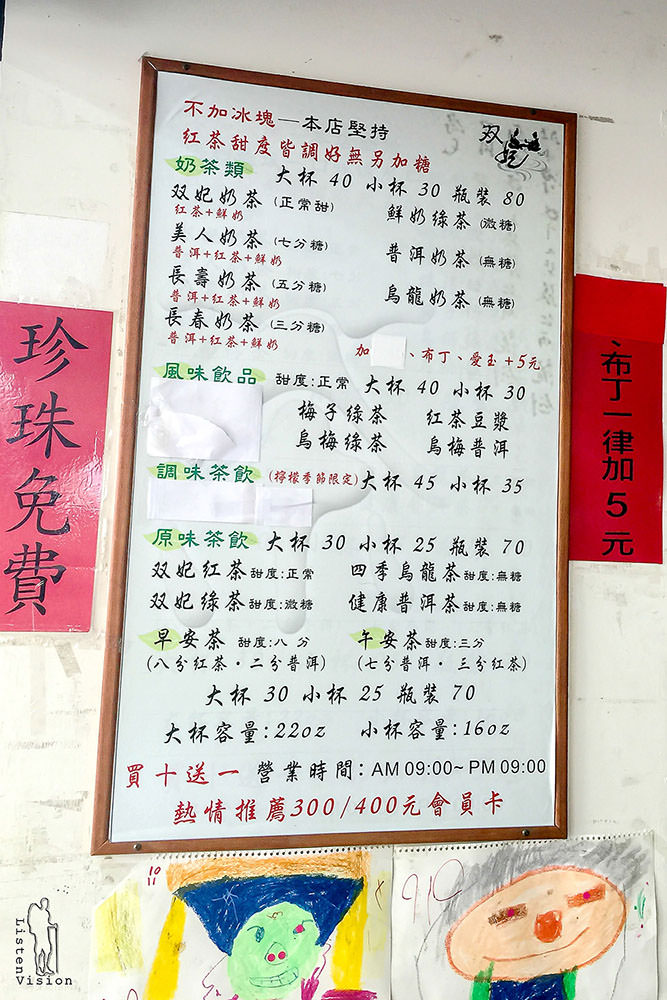 不加冰塊—本店堅持
双妃
紅茶甜度皆調好無另加糖
奶茶類 大杯 40 小杯 30 瓶裝 80
双妃奶茶 (正常甜) 鮮奶綠茶 (微糖)
紅茶+鮮奶
美人奶茶 (七分糖) 普洱奶茶 (無糖)
普洱+紅茶+鮮奶
長壽奶茶 (五分糖) 烏龍奶茶 (無糖)
普洱+紅茶+鮮奶
長春奶茶 (三分糖)
普洱+紅茶+鮮奶
加 、布丁、愛玉 +5元
風味飲品 甜度:正常 大杯 40 小杯 30
梅子綠茶 紅茶豆漿
烏梅綠茶 烏梅普洱
調味茶飲 (檸檬季節限定) 大杯 45 小杯 35
原味茶飲 大杯 30 小杯 25 瓶裝 70
双妃紅茶 甜度:正常 四季烏龍茶 甜度:無糖
双妃綠茶 甜度:微糖 健康普洱茶 甜度:無糖
早安茶 甜度:八 分 午安茶 甜度:三分
(八分紅茶·二分普洱) (七分普洱·三分紅茶)
大杯 30 小杯 25 瓶裝 70
大杯容量:22oz 小杯容量:16oz
買十送一 營業時間: AM 09:00~ PM 09:00
熱情推薦300/400元會員卡
珍珠免費
、布丁一律加5元
10
11
910
Listen
Vision